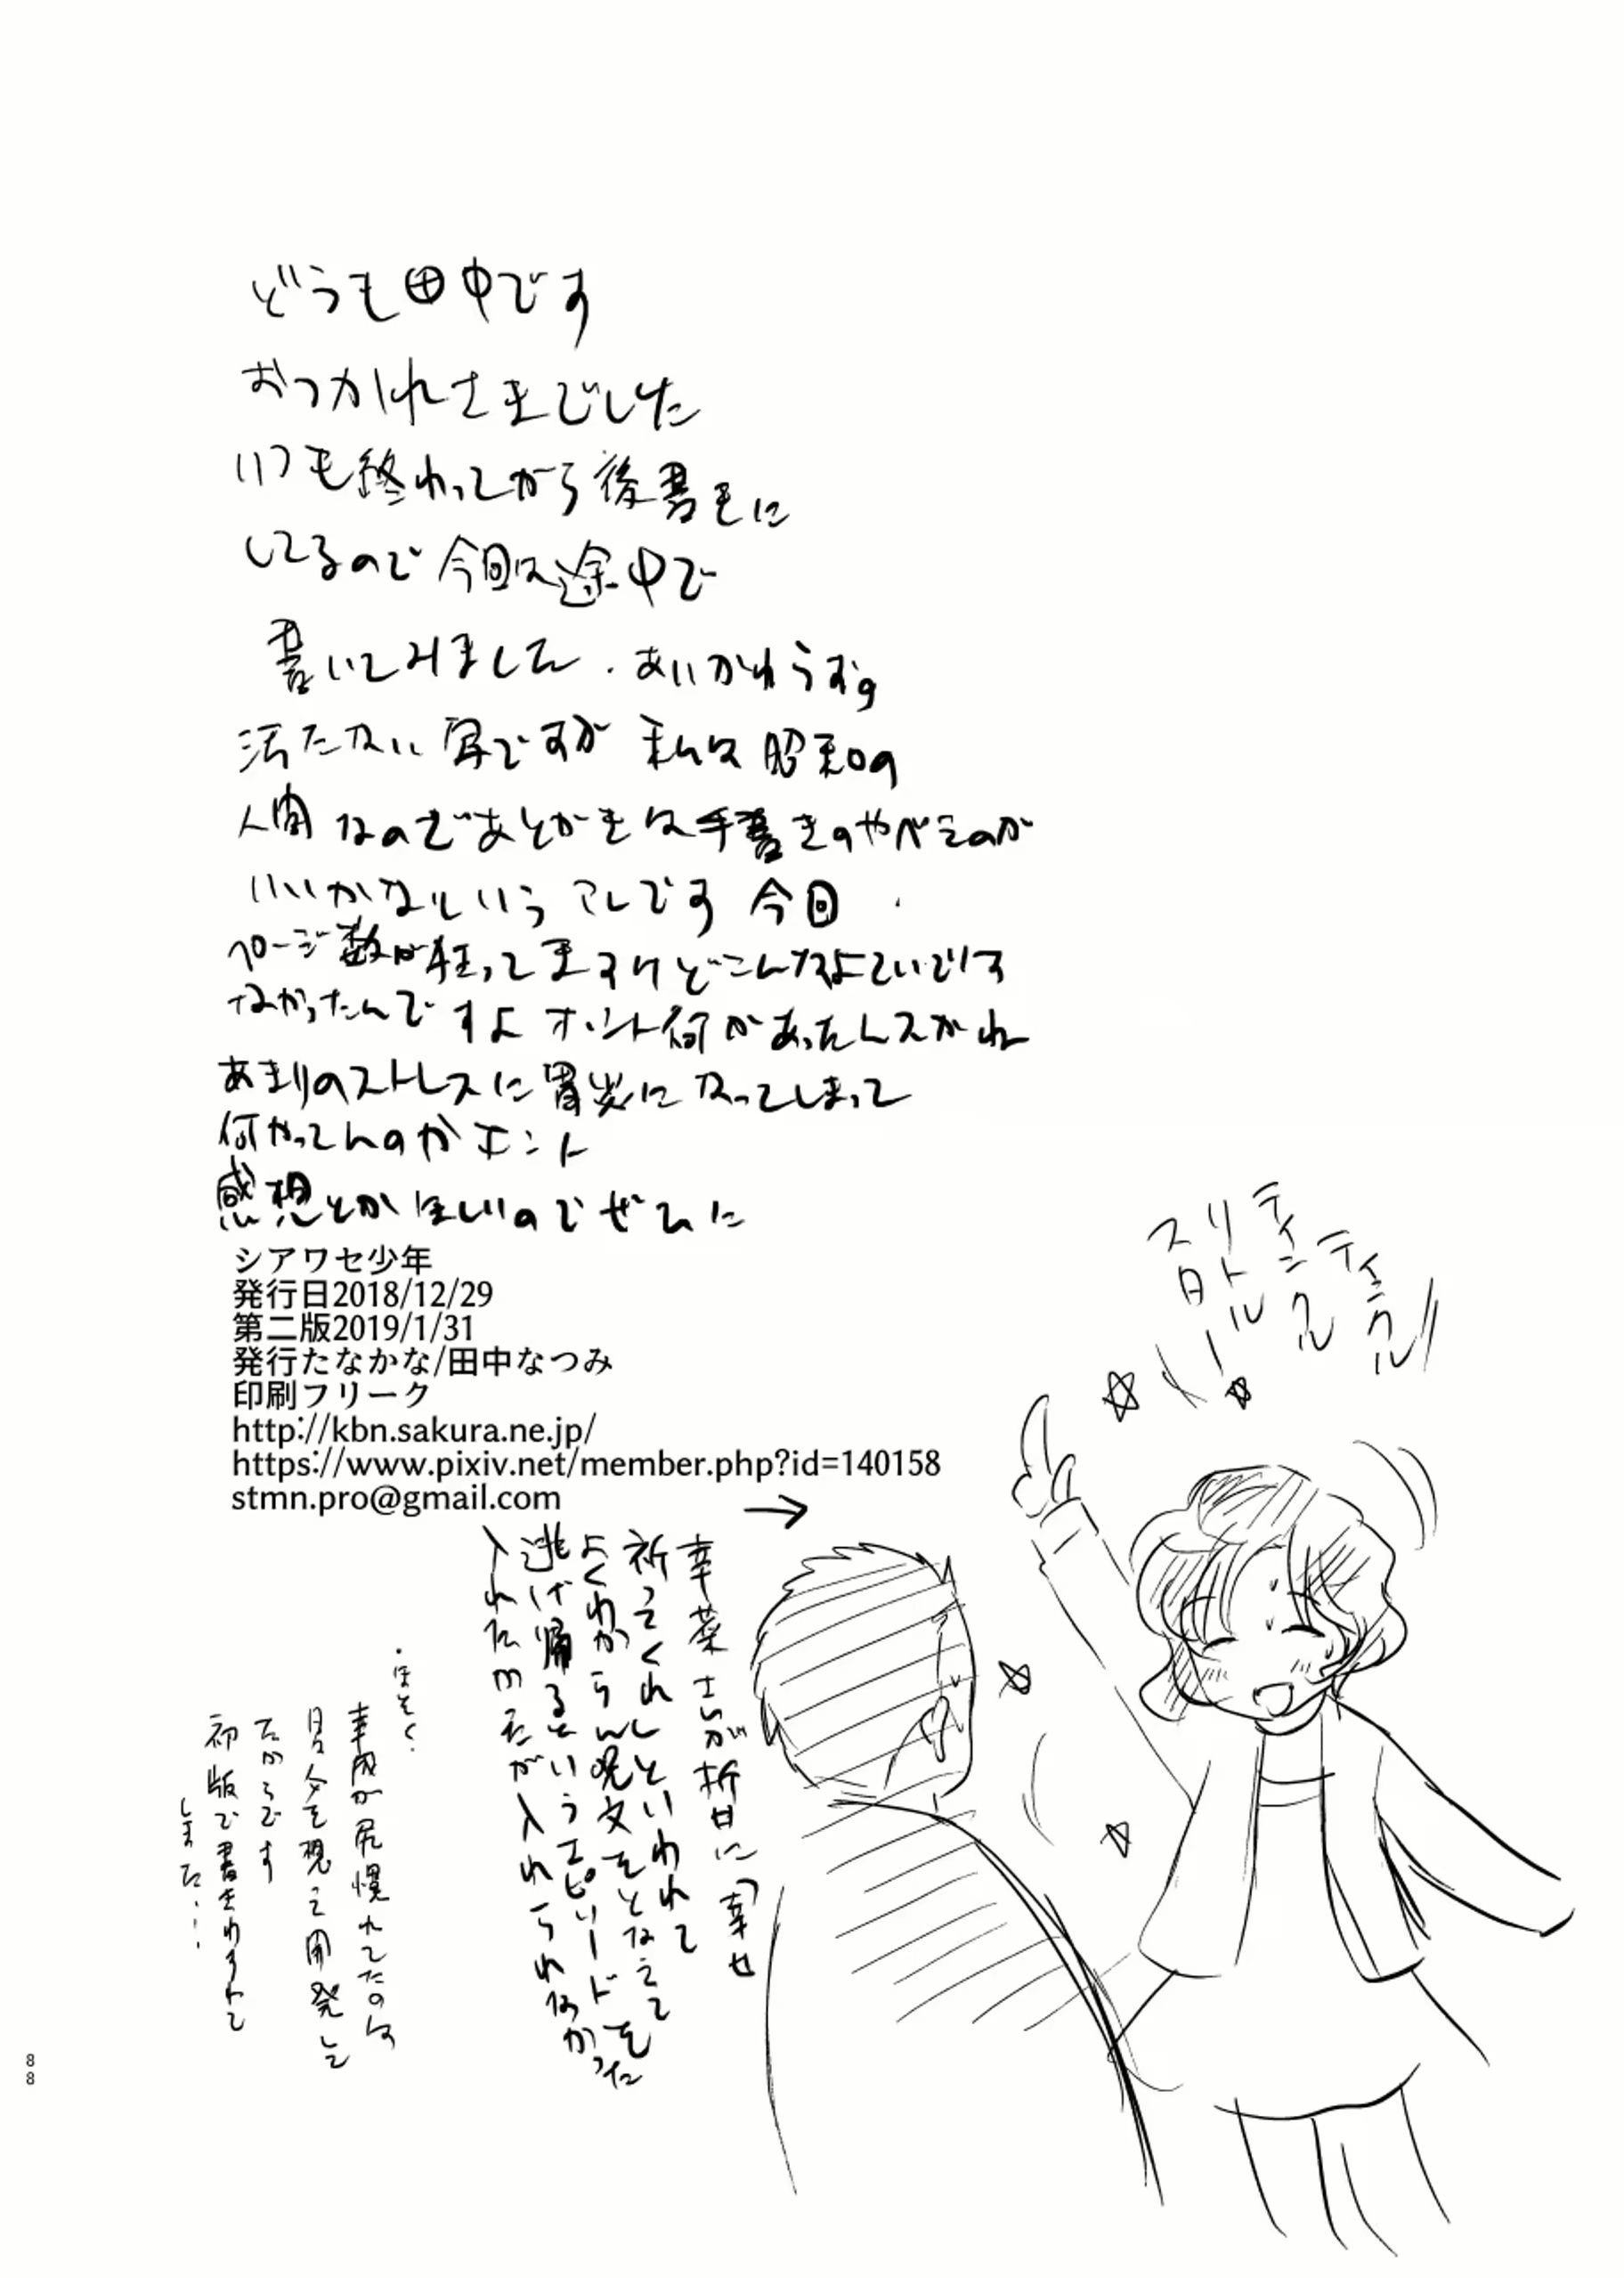 どうも田中です
おつかれさまでした
いつも終わってから後書きに
しているので今回は途中で
書いてみました.あいかわらずの
汚たない字ですが私は昭和の
人間なのであとがきは手書きのやべえのが
いいかなというコレです今回
ページ数が狂ってますけどこんなよていでは
なかったんですよホント何があったんスかね
あまりのストレスに胃炎になってしまって
何やってんのかホント
感想とかほしいのでぜひに
シアワセ少年
発行日2018/12/29
第二版2019/1/31
発行たなかな/田中なつみ
印刷フリーク
http://kbn.sakura.ne.jp/
https://www.pixiv.net/member.php?id=140158
stmn.pro@gmail.com
→
幸菜さんが折日に「幸せ
祈ってくれ」といわれて
よくわからん呪文をとなえて
逃げ帰るというエピソードを
入れたかったが入れられなかった
・ほそく・
幸成が尻慣れてたのは
自分を想って開発して
たからです
初版で書きわすれて
しまった…
ティンクル
ティンクル
リトル
スター
88